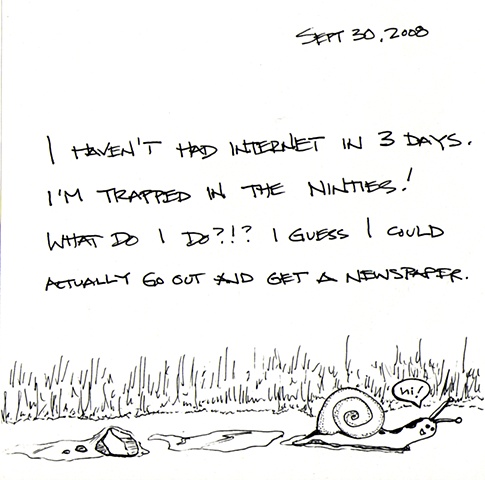 SEPT 30, 2008
I HAVEN'T HAD INTERNET IN 3 DAYS.
I'M TRAPPED IN THE NINTIES!
WHAT DO I DO?!? I GUESS I COULD
ACTUALLY GO OUT AND GET A NEWSPAPER.
hi!